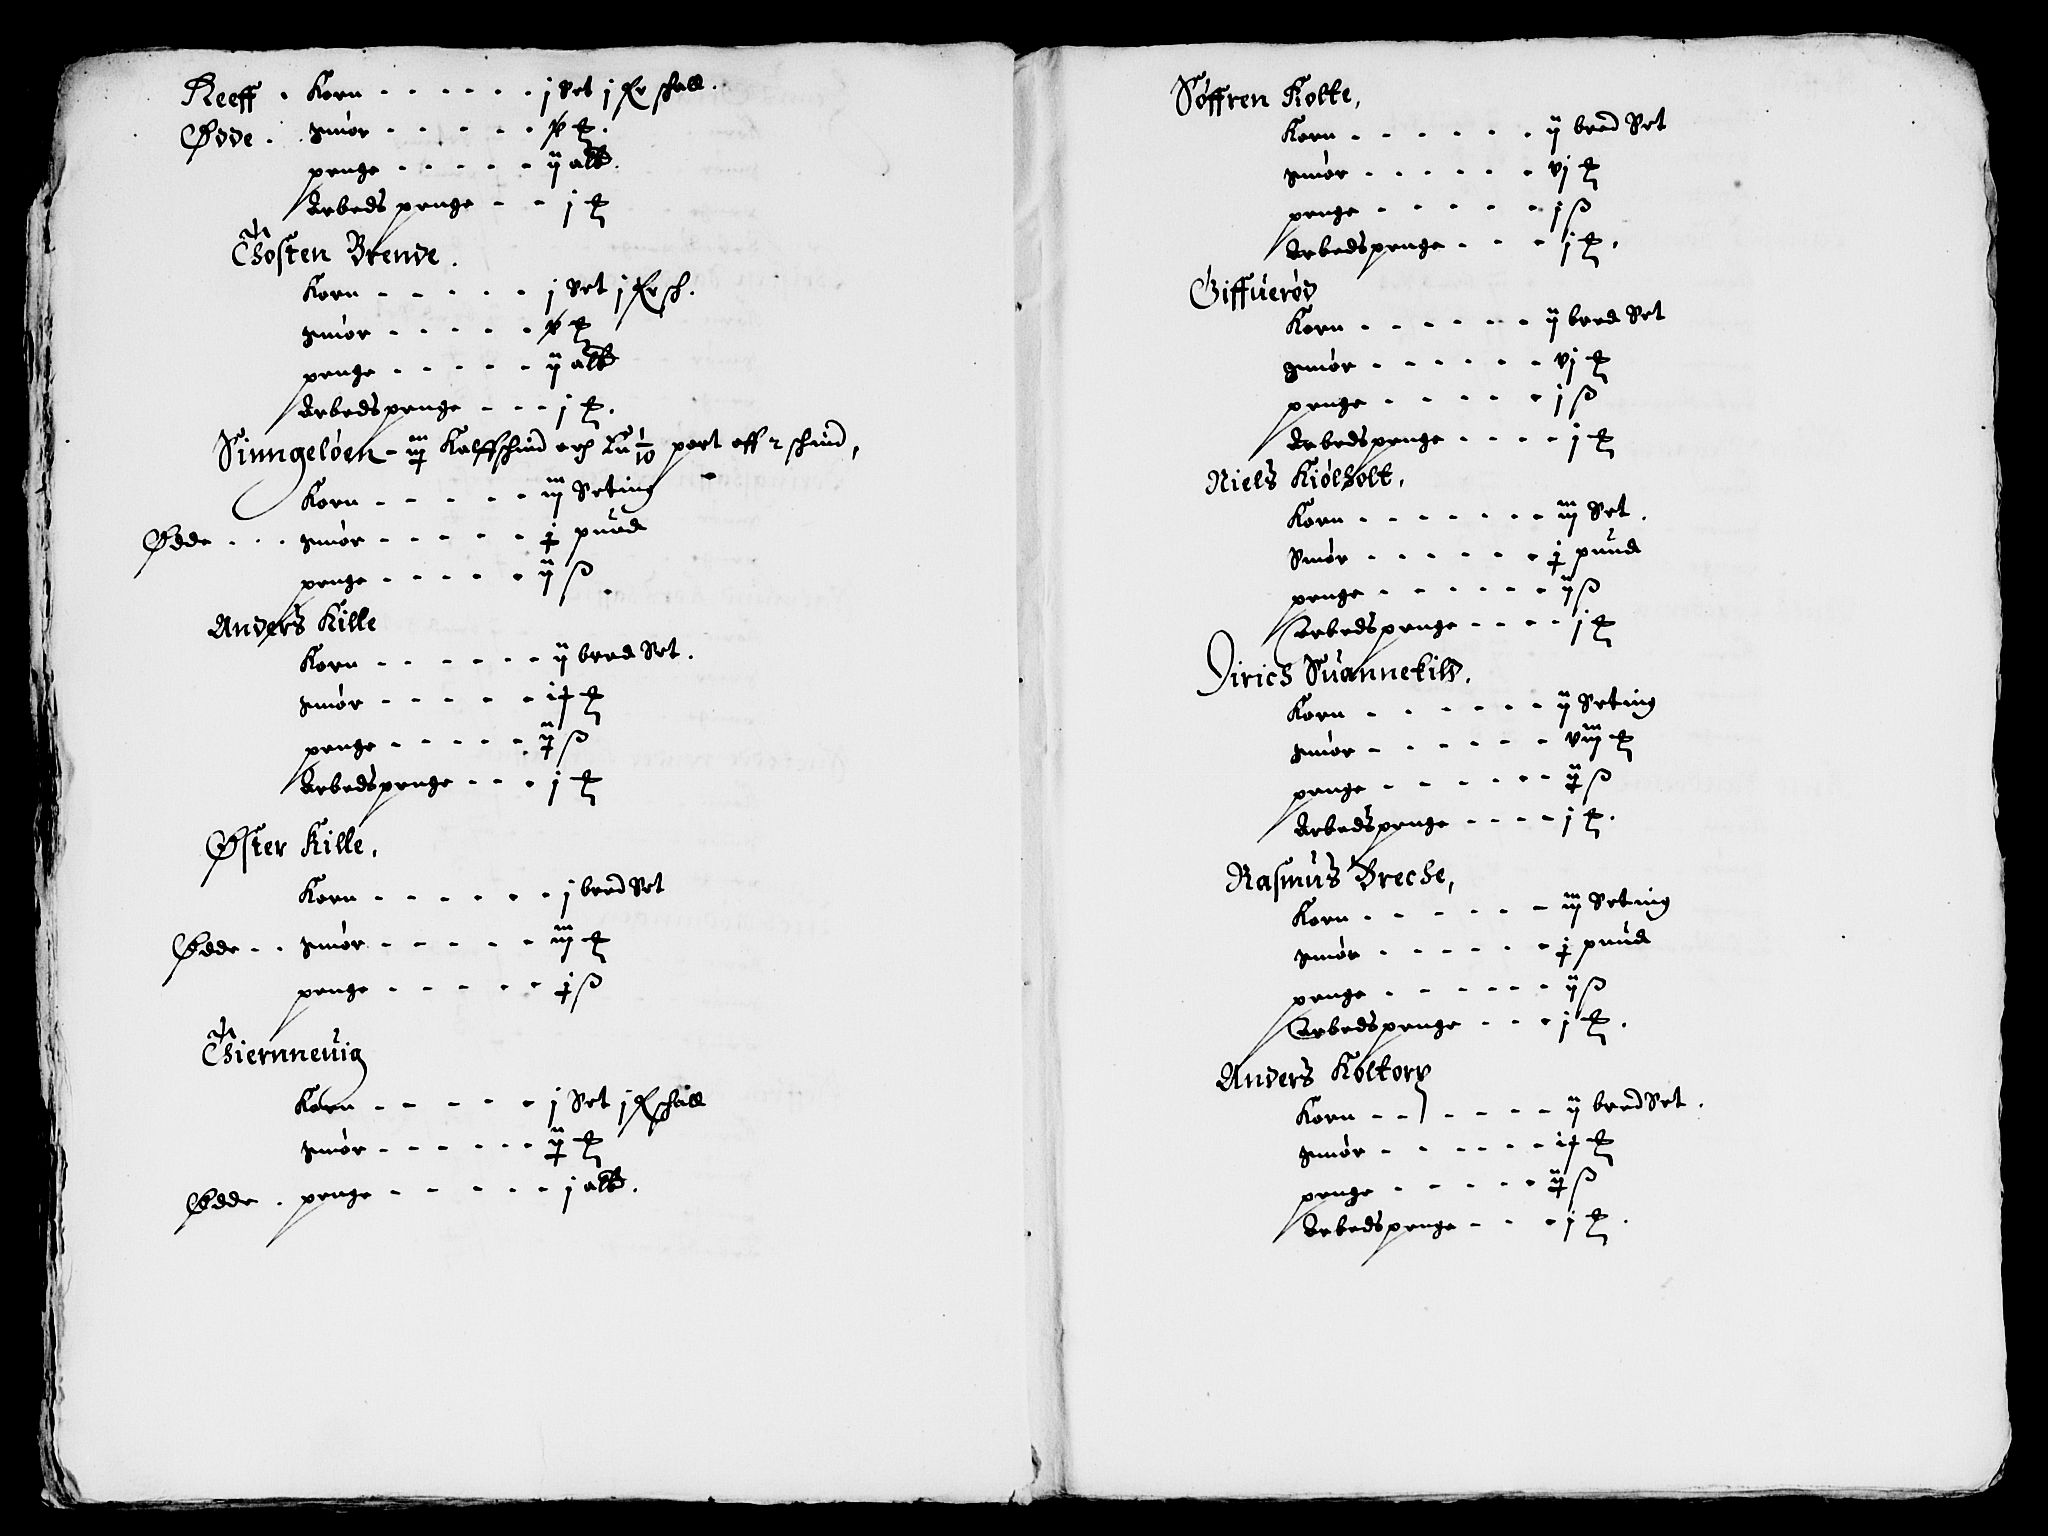 Reeff . Korn - - - - - - j Set j fr schall.
Øde . smør - - - - - - ꝟ ℔.
penge - - - - - ij alb.
Arbeds penge - - j ℔
Thosten Brende.
Korn - - - - - j Set j fr sch.
smør - - - - - ℔
penge - - - - - ij alb
Arbedspenge - - - j ℔.
Sinngeløen - iij Kalffschind och 1/10 part aff 2 schind,
Korn - - - - - iij Seting
Øde . . . smør - - - - - j pund
penge - - - - - ij ß
Anders Kille
Korn - - - - - - ij bred Set.
smør - - - - - - ij ℔
penge - - - - - ij ß
Arbedspenge - - - j ℔
Øster Kille,
Korn - - - - - - j bred Set
Øde - . smør - - - - - - iij ℔
penge - - - - - j ß
Thiernneuig
Korn - - - - - j Set j fr schall
smør - - - - - - ij ℔
Øde . penge - - - - - j alb.
Søffren Kolte,
Korn - - - - - - ij bred Set
smør - - - - - - vj ℔
penge - - - - - j ß
Arbedspenge - - - j ℔.
Giffuerød
Korn - - - - - - ij bred Set
smør - - - - - - vj ℔
penge - - - - - j ß
Arbedspenge - - - - j ℔
Niels Kiølholt,
Korn - - - - - - - iij Set.
Smør - - - - - - j pund
penge - - - - - - ij ß
Arbedspenge - - - - j ℔
Dirich Suannekild.
Korn - - - - - - ij Seting
smør - - - - - - viij ℔
penge - - - - - - ij ß
Arbedspenge - - - - j ℔.
Rasmus Breche,
Korn - - - - - - iij Seting
smør - - - - - - j pund
penge - - - - - - ij ß
Arbedspenge - - - j ℔.
Anders Koltorp
Korn - - - - - - ij bred Set.
smør - - - - - - ij ℔
penge - - - - - ij ß
Arbedspenge - - - j ℔.